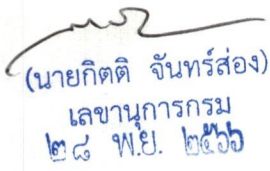 (นายกิตติ จันทร์ส่อง)
เลขานุการกรม
๒๘ พ.ย. ๒๕๖๖